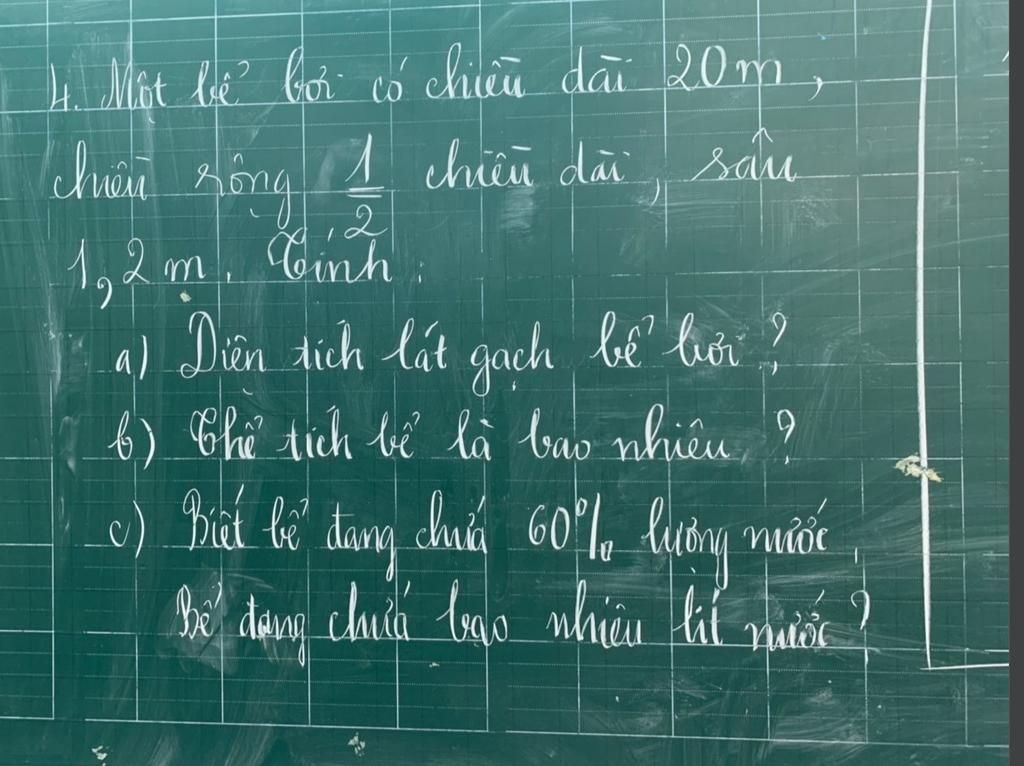 4. Một bể bơi có chiều dài 20m,
chiều rộng 1/2 chiều dài, sâu
1,2m. Tính:
a) Diện tích lát gạch bể bơi?
b) Thể tích bể là bao nhiêu?
c) Biết bể đang chứa 60% lượng nước.
Bể đang chứa bao nhiêu lít nước?